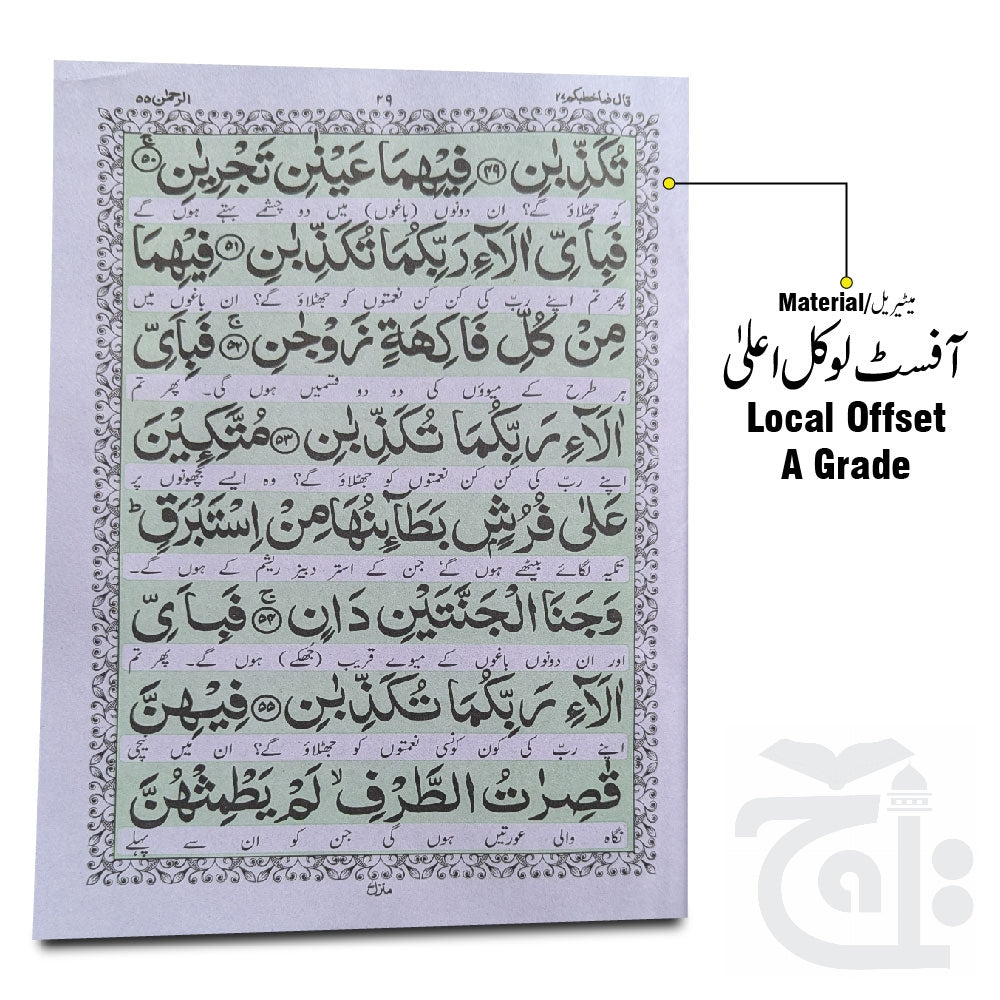 قال فما خطبکم ۲۷ ۲۹ الرحمٰن ۵۵
تُكَذِّبٰنِ ۴۹ فِیْهِمَا عَیْنٰنِ تَجْرِیٰنِ ۚ ۵۰
کو جھٹلاؤ گے؟ ان دونوں (باغوں) میں دو چشمے بہتے ہوں گے
فَبِاَیِّ اٰلَآءِ رَبِّكُمَا تُكَذِّبٰنِ ۵۱ فِیْهِمَا
پھر تم اپنے ربّ کی کن کن نعمتوں کو جھٹلاؤ گے؟ ان باغوں میں
مِنْ كُلِّ فَاكِهَةٍ زَوْجٰنِ ۚ ۵۲ فَبِاَیِّ
ہر طرح کے میوؤں کی دو دو قسمیں ہوں گی۔ پھر تم
اٰلَآءِ رَبِّكُمَا تُكَذِّبٰنِ ۵۳ مُتَّكِـِٕیْنَ
اپنے ربّ کی کن کن نعمتوں کو جھٹلاؤ گے؟ وہ ایسے بچھونوں پر
عَلٰى فُرُشٍۭ بَطَآىِٕنُهَا مِنْ اِسْتَبْرَقٍ ؕ
تکیہ لگائے بیٹھے ہوں گے جن کے استر دبیز ریشم کے ہوں گے۔
وَجَنَا الْجَنَّتَیْنِ دَانٍ ۚ ۵۴ فَبِاَیِّ
اور ان دونوں باغوں کے میوے قریب (جُھکے) ہوں گے۔ پھر تم
اٰلَآءِ رَبِّكُمَا تُكَذِّبٰنِ ۵۵ فِیْهِنَّ
اپنے ربّ کی کون کونسی نعمتوں کو جھٹلاؤ گے؟ ان میں نیچی
قٰصِرٰتُ الطَّرْفِ ۙ لَمْ یَطْمِثْهُنَّ
نگاہ والی عورتیں ہوں گی جن کو ان سے پہلے
Material/میٹیریل
آفسٹ لوکل اعلیٰ
Local Offset
A Grade